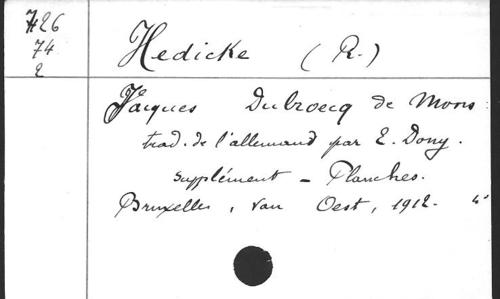 H26
74
2
Hedicke (R.)
Jacques Dubroecq de Mons :
trad. de l'allemand par E. Dony.
supplément - Planches.
Bruxelles, van Oest, 1912. 4°